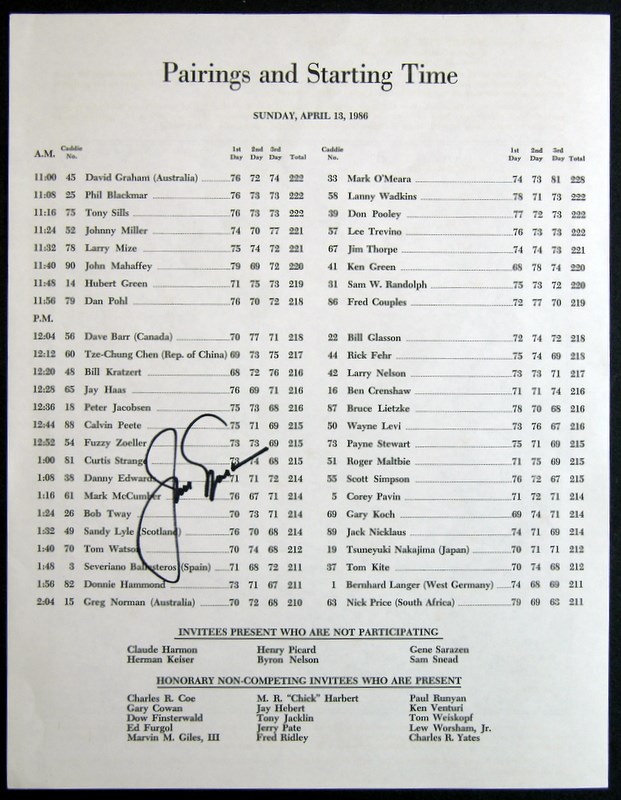 Pairings and Starting Time
SUNDAY, APRIL 13, 1986
A.M. Caddie No. 1st Day 2nd Day 3rd Day Total Caddie No. 1st Day 2nd Day 3rd Day Total
11:00 45 David Graham (Australia) 76 72 74 222 33 Mark O'Meara 74 73 81 228
11:08 25 Phil Blackmar 76 73 73 222 58 Lanny Wadkins 78 71 73 222
11:16 75 Tony Sills 76 73 73 222 39 Don Pooley 77 72 73 222
11:24 52 Johnny Miller 74 70 77 221 57 Lee Trevino 76 73 73 222
11:32 78 Larry Mize 75 74 72 221 67 Jim Thorpe 74 74 73 221
11:40 90 John Mahaffey 79 69 72 220 41 Ken Green 68 78 74 220
11:48 14 Hubert Green 71 75 73 219 31 Sam W. Randolph 75 73 72 220
11:56 79 Dan Pohl 76 70 72 218 86 Fred Couples 72 77 70 219
P.M.
12:04 56 Dave Barr (Canada) 70 77 71 218 22 Bill Glasson 72 74 72 218
12:12 60 Tze-Chung Chen (Rep. of China) 69 73 75 217 44 Rick Fehr 75 74 69 218
12:20 48 Bill Kratzert 68 72 76 216 42 Larry Nelson 73 73 71 217
12:28 65 Jay Haas 76 69 71 216 16 Ben Crenshaw 71 71 74 216
12:36 18 Peter Jacobsen 75 73 68 216 87 Bruce Lietzke 78 70 68 216
12:44 88 Calvin Peete 75 71 69 215 50 Wayne Levi 73 76 67 216
12:52 54 Fuzzy Zoeller 73 73 69 215 73 Payne Stewart 75 71 69 215
1:00 81 Curtis Strange 73 74 68 215 51 Roger Maltbie 71 75 69 215
1:08 38 Danny Edwards 71 71 72 214 55 Scott Simpson 76 72 67 215
1:16 61 Mark McCumber 76 67 71 214 5 Corey Pavin 71 72 71 214
1:24 26 Bob Tway 70 73 71 214 69 Gary Koch 69 74 71 214
1:32 49 Sandy Lyle (Scotland) 76 70 68 214 89 Jack Nicklaus 74 71 69 214
1:40 70 Tom Watson 70 74 68 212 19 Tsuneyuki Nakajima (Japan) 70 71 71 212
1:48 3 Severiano Ballesteros (Spain) 71 68 72 211 37 Tom Kite 70 74 68 212
1:56 82 Donnie Hammond 73 71 67 211 1 Bernhard Langer (West Germany) 74 68 69 211
2:04 15 Greg Norman (Australia) 70 72 68 210 63 Nick Price (South Africa) 79 69 63 211
INVITEES PRESENT WHO ARE NOT PARTICIPATING
Claude Harmon Henry Picard Gene Sarazen
Herman Keiser Byron Nelson Sam Snead
HONORARY NON-COMPETING INVITEES WHO ARE PRESENT
Charles R. Coe M. R. "Chick" Harbert Paul Runyan
Gary Cowan Jay Hebert Ken Venturi
Dow Finsterwald Tony Jacklin Tom Weiskopf
Ed Furgol Jerry Pate Lew Worsham, Jr.
Marvin M. Giles, III Fred Ridley Charles R. Yates